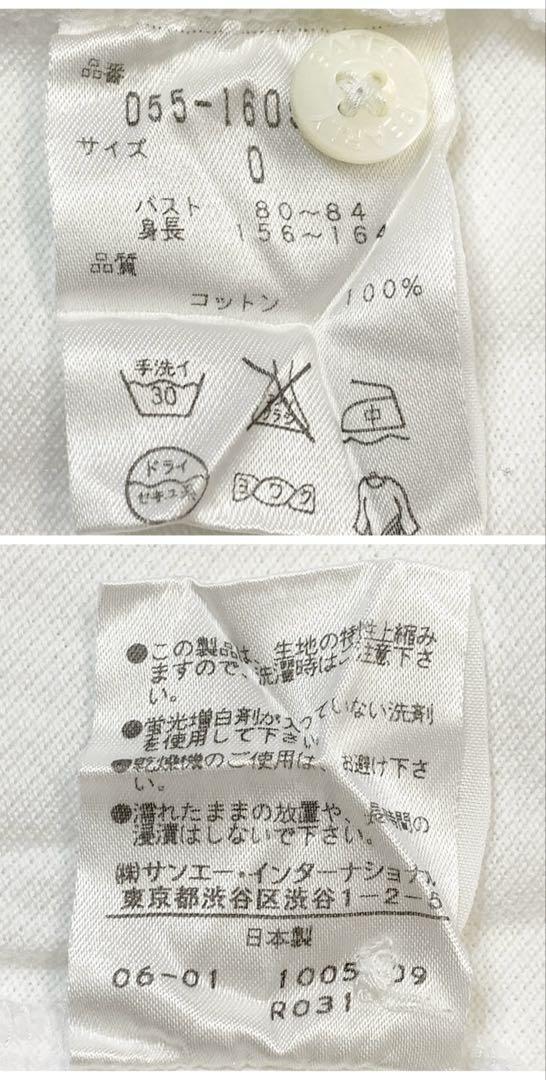 品番
055-160
サイズ
0
バスト 80〜84
身長 156〜164
品質
コットン 100%
手洗イ
30
中
ドライ
セキユ系
ヨワク
●この製品は、生地の特性上縮み
ますので、洗濯時はご注意下さ
い。
●蛍光増白剤が入っていない洗剤
を使用して下さい
●乾燥機のご使用は、お避け下さ
い。
●濡れたままの放置や、長時間の
浸漬はしないで下さい。
㈱サンエー・インターナショナル
東京都渋谷区渋谷1-2-5
日本製
06-01 1005 09
R031